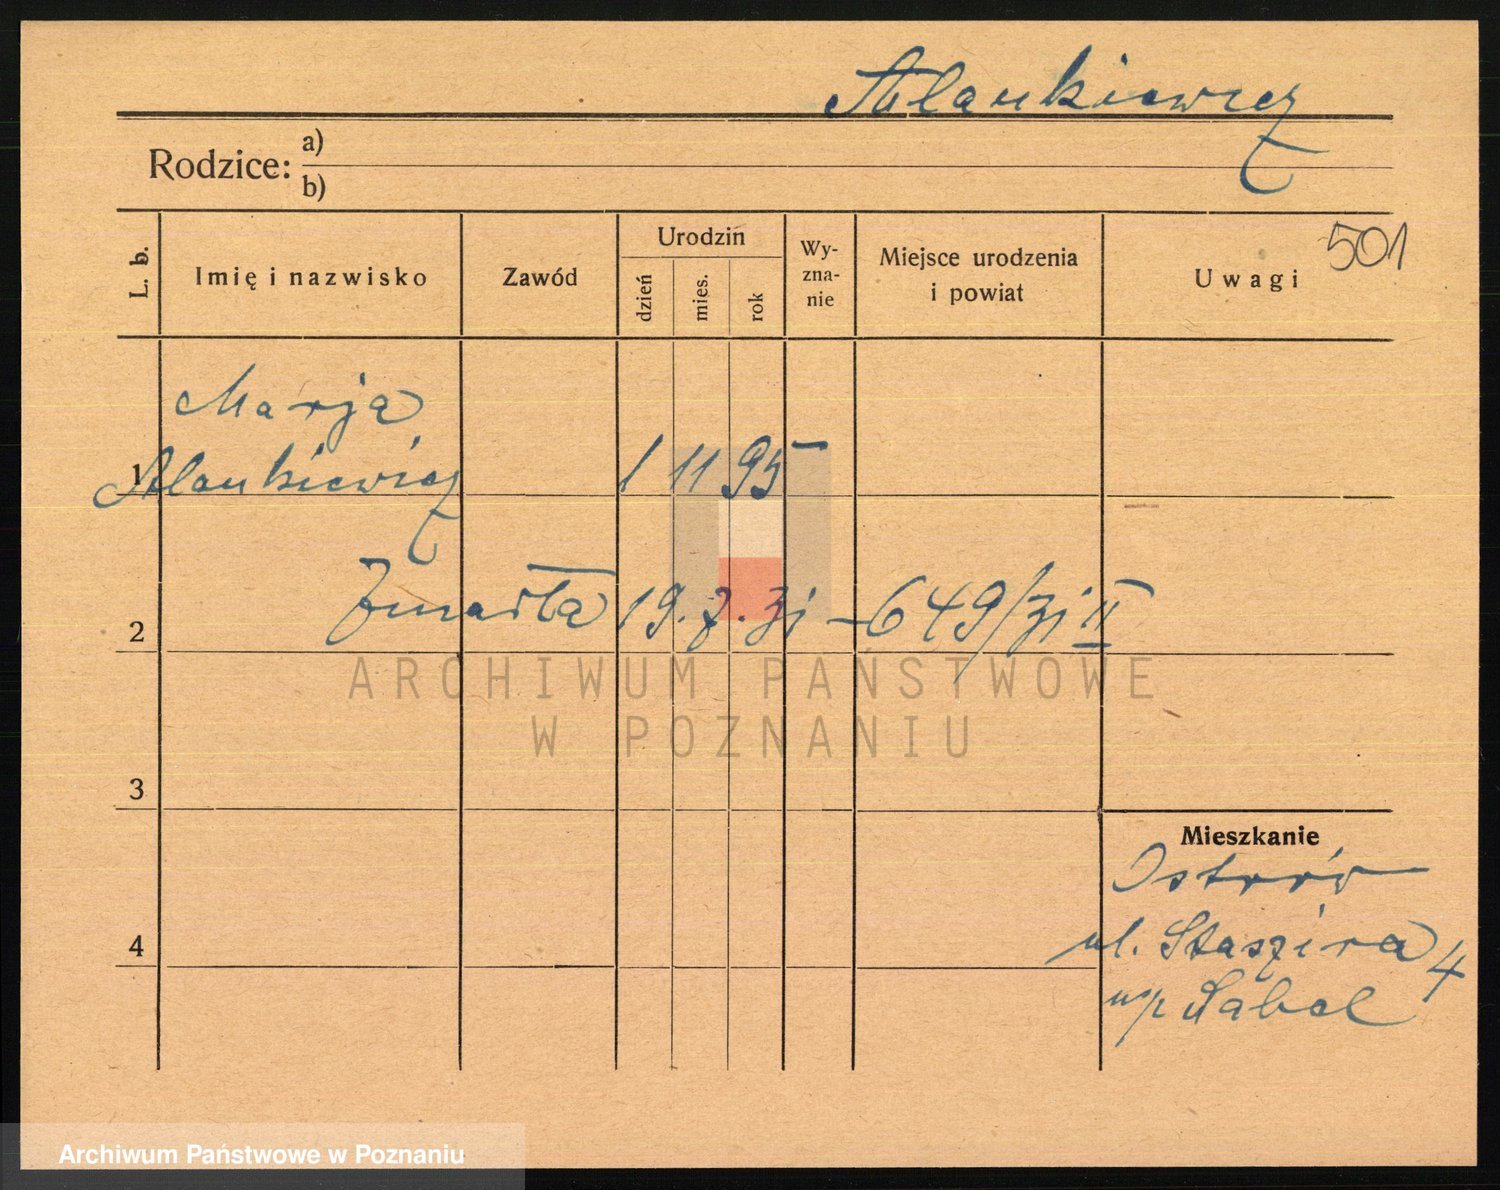 Alankiewicz
Rodzice: a)
b)
501
L. b. Imię i nazwisko Zawód Urodzin dzień mies. rok Wy-zna-nie Miejsce urodzenia i powiat Uwagi
Marja
1 Alankiewicz 1 11 95 –
2 Zmarła 19. 7. 31 – 649/31 II
ARCHIWUM PAŃSTWOWE
W POZNANIU
3
Mieszkanie
Ostrów
4 ul. Staszica 4
Archiwum Państwowe w Poznaniu